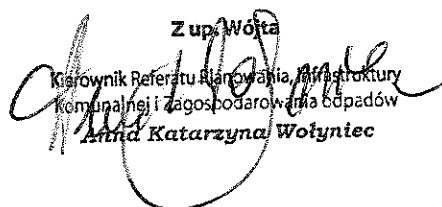 Z up. Wójta
Kierownik Referatu Planowania, Infrastruktury
Komunalnej i Zagospodarowania odpadów
Anna Katarzyna Wołyniec